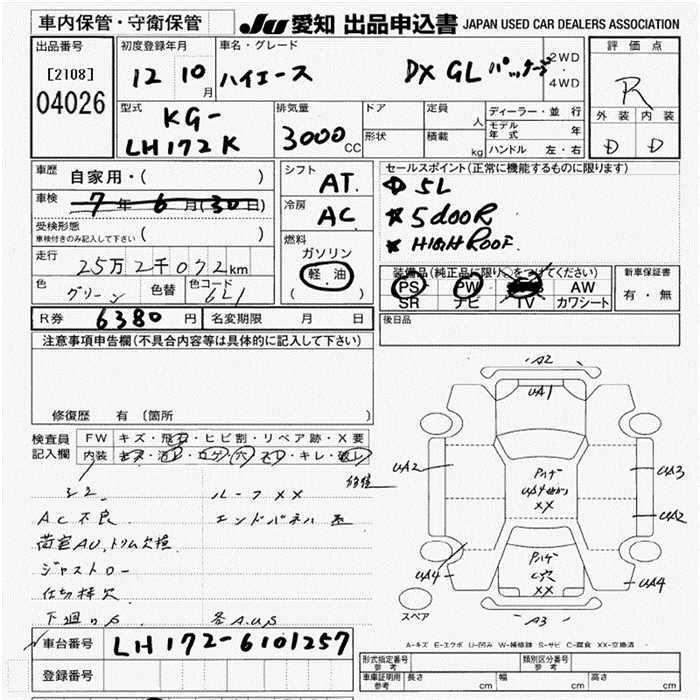 車内保管・守衛保管
JU 愛知 出品申込書 JAPAN USED CAR DEALERS ASSOCIATION
出品番号
[2108]
04026
初度登録年月
12 年 10 月
車名・グレード
ハイエース DX GL パッケージ
2WD
・
4WD
評価点
R
外装 内装
D D
型式
KG-
LH172K
排気量
3000 CC
ドア
形状
定員 人
積載 kg
ディーラー・並行
モデル年式 年
ハンドル 左・右
車歴 自家用・( )
車検 7年 6月(30日)
受検形態
車検付きのみ記入して下さい ( )
走行 25万2千072km
色 グリーン 色替 色コード 6L1
シフト AT
冷房 AC
燃料
ガソリン
軽油
( )
セールスポイント(正常に機能するものに限ります)
5L
★ 5dooR
★ HIGH ROOF.
装備品(純正品に限り、○をつけてください)
PS PW AW
SR ナビ TV カワシート
新車保証書
有・無
R券 6380 円 名変期限 月 日
後日品
注意事項申告欄(不具合内容等は具体的に記入して下さい)
修復歴 有 (箇所 )
検査員記入欄
FW キズ・飛石・ヒビ割・リペア跡・X要
内装 キズ・汚レ・コゲ・穴・スレ・キレ・破レ
シミ ルーフXX
AC不良 エンドパネル
荷室AU、トリム欠損
ジャストロー
仕切棒欠
下廻りS 各A.U.S
A2
UA1
UA2
UA3
UA2
XX
XX
UA4
UA4
A3
スペア
A-キズ E-エクボ U-凹み W-補修跡 S-サビ C-腐食 XX-交換済
車台番号 LH172-6101257
登録番号
形式指定番号 参考
類別区分番号 参考
車庫証明用 参考 長さ cm 幅 cm 高さ cm